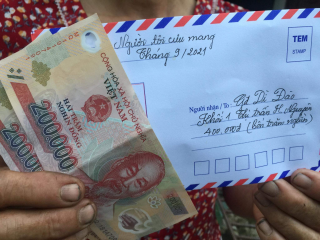 Người tôi cưu mang
Tháng 9/2021
TEM
STAMP
Người nhận / To :
Gđ Dì Đào
Khối 1 Thị trấn H. Nguyên
400.000đ (bốn trăm nghìn)
CỘNG HÒA XÃ HỘI CHỦ NGHĨA
VIỆT NAM
HAI TRĂM
NGHÌN ĐỒNG
200000
200000